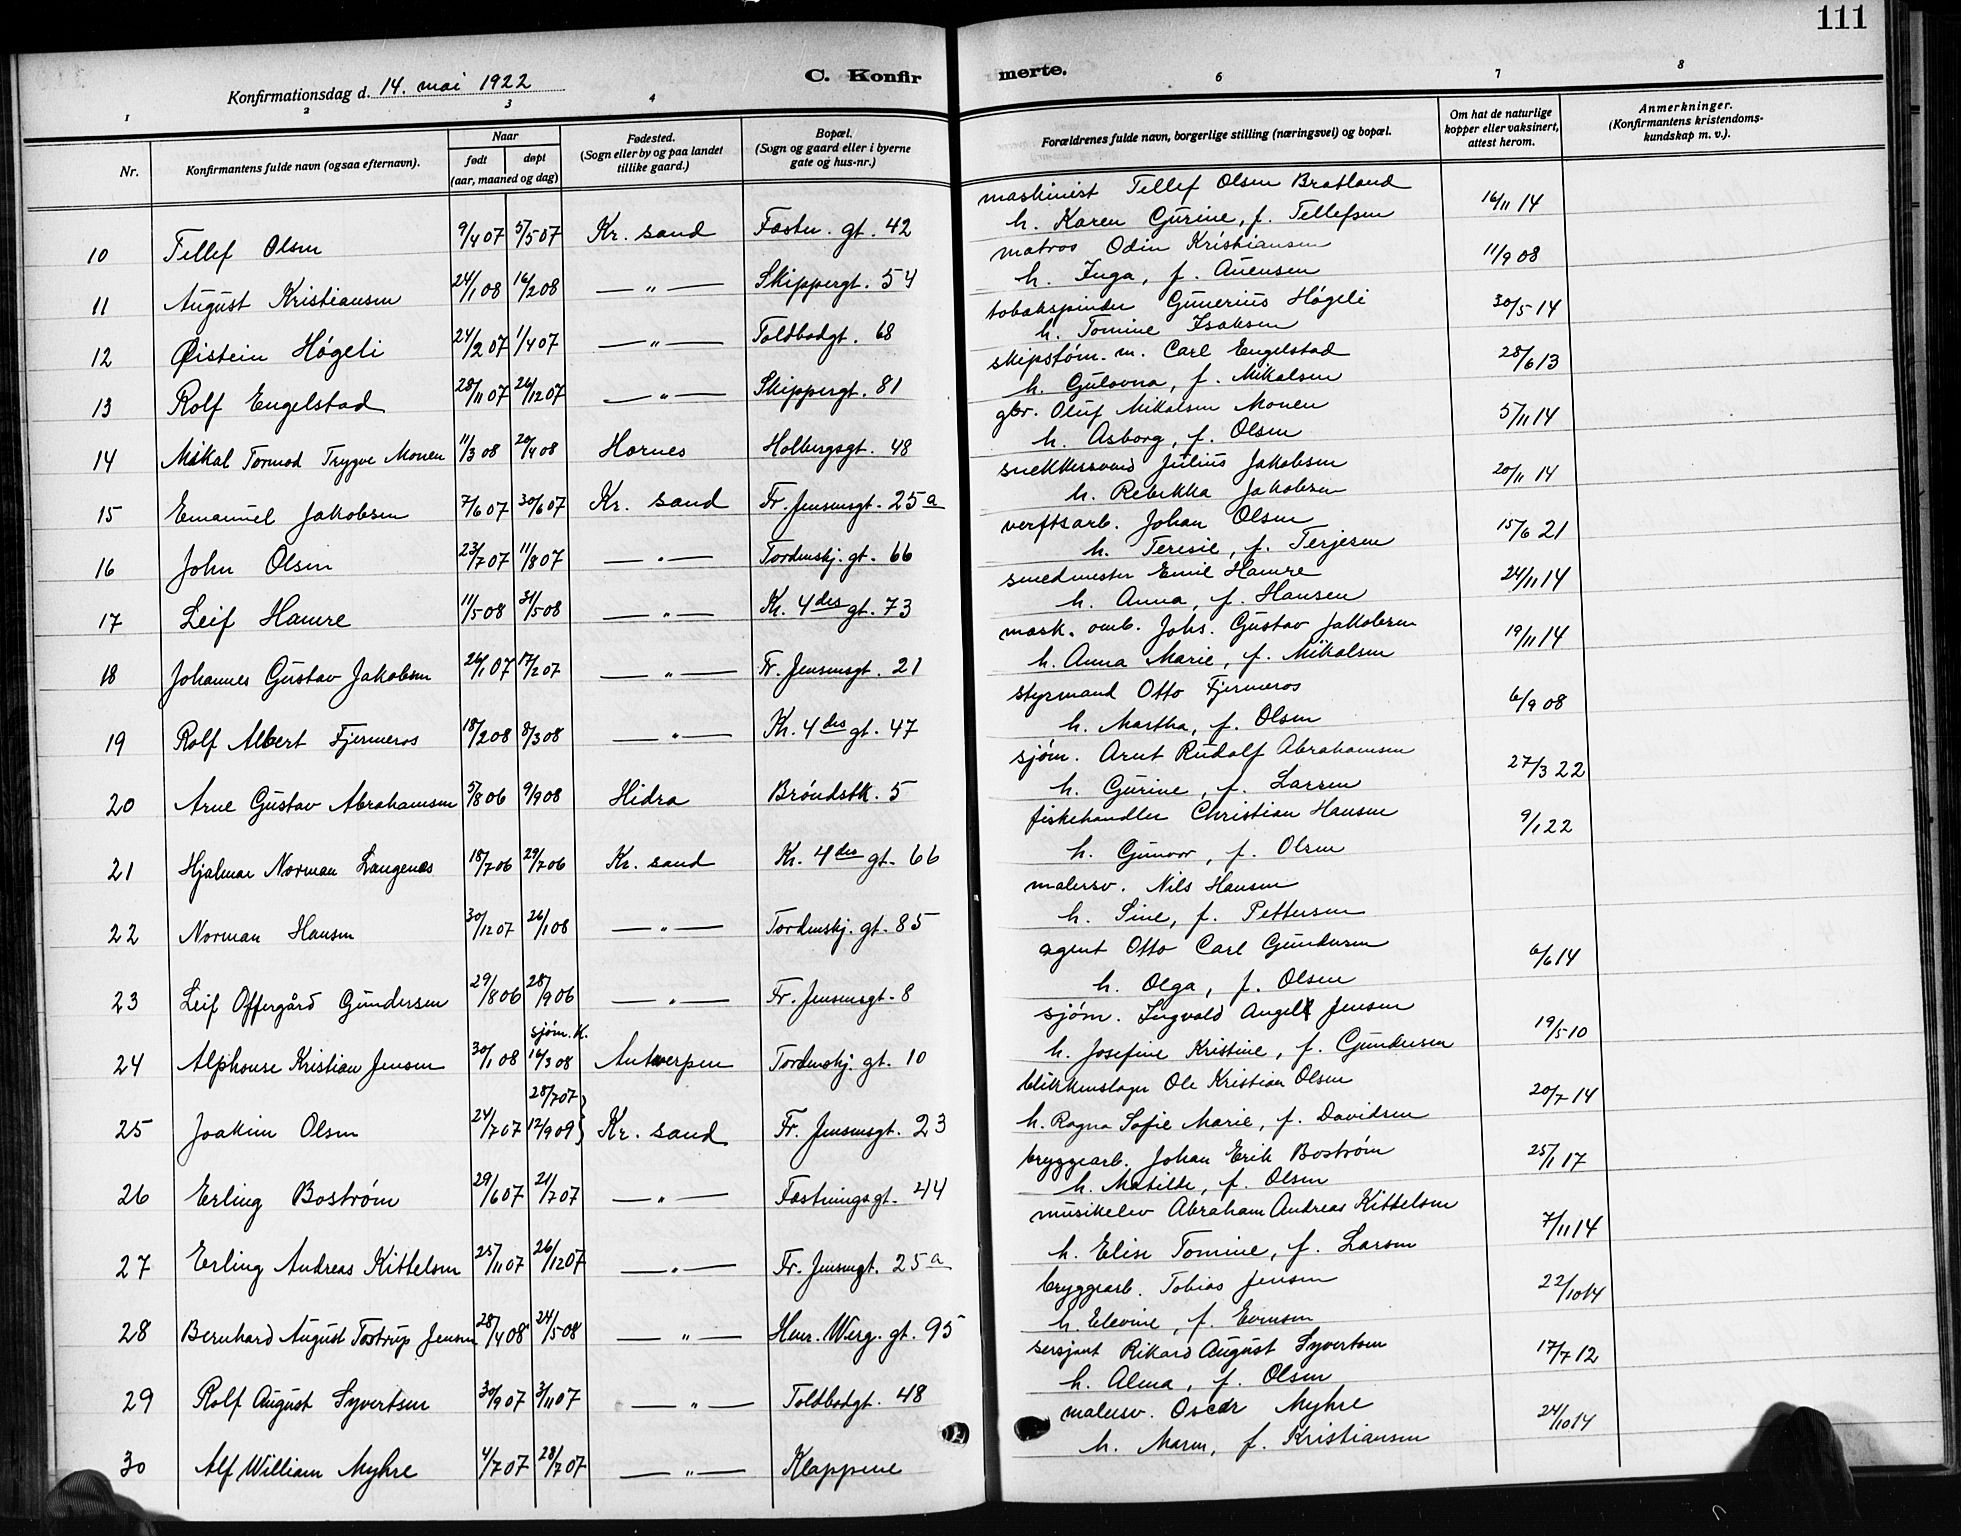 111
Konfirmationsdag d. 14. mai 1922
C. Konfir
merte.
1 2 3 4 6 7 8
Nr.
Konfirmantens fulde navn (ogsaa efternavn).
Naar
født døpt
(aar, maaned og dag)
Fødested.
(Sogn eller by og paa landet
tillike gaard.)
Bopæl.
(Sogn og gaard eller i byerne
gate og hus-nr.)
Forældrenes fulde navn, borgerlige stilling (næringsvei) og bopæl.
Om hat de naturlige
kopper eller vaksinert,
attest herom.
Anmerkninger.
(Konfirmantens kristendoms-
kundskap m. v.).
10 Tellef Olsen 9/4 07 5/5 07 Kr. sand Fæstn. gt. 42
maskinist Tellef Olsen Bratland 16/11 14
h. Karen Gurine, f. Tellefsen
11 August Kristiansen 24/1 08 16/2 08 — " — Skippergt. 54
matros Odin Kristiansen 11/9 08
h. Inga, f. Auensen
12 Øistein Høgeli 24/2 07 1/4 07 — " — Toldbodgt. 68
tobakspinder Gunerius Høgeli 30/5 14
h. Tomine Isaksen
13 Rolf Engelstad 28/11 07 26/12 07 — " — Skippergt. 81
skipsføm. m. Carl Engelstad 28/6 13
h. Gulovna, f. Mikalsen
14 Mikal Tormod Trygve Monen 11/3 08 20/4 08 Hornes Holbergsgt. 48
gbr. Oluf Mikalsen Monen 5/11 14
h. Asborg, f. Olsen
15 Emanuel Jakobsen 7/6 07 30/6 07 Kr. sand Fr. Jensensgt. 25a
snekkersvend Julius Jakobsen 20/11 14
h. Rebekka Jakobsen
16 John Olsen 23/7 07 11/8 07 — " — Tordenskj. gt. 66
verftsarb. Johan Olsen 15/6 21
h. Teresie, f. Terjesen
17 Leif Hamre 11/5 08 31/5 08 — " — Kr. 4des gt. 73
smedmester Emil Hamre 24/11 14
h. Anna, f. Hansen
18 Johannes Gustav Jakobsen 26/1 07 17/2 07 — " — Fr. Jensensgt. 21
mask. omb. Johs. Gustav Jakobsen 19/11 14
h. Anna Marie, f. Mikalsen
19 Rolf Albert Fjermeros 18/2 08 8/3 08 — " — Kr. 4des gt. 47
styrmand Otto Fjermeros 6/9 08
h. Martha, f. Olsen
20 Arne Gustav Abrahamsen 5/8 06 9/9 08 Hidra Brøndstk. 5
sjøm. Arnt Rudolf Abrahamsen 27/3 22
h. Gurine, f. Larsen
21 Hjalmar Norman Langenes 18/7 06 29/7 06 Kr. sand Kr. 4des gt. 66
fiskehandler Christian Hansen 9/1 22
h. Gunvor, f. Olsen
22 Norman Hansen 30/12 07 26/1 08 — " — Tordenskj. gt. 85
malersv. Nils Hansen
h. Sine, f. Pettersen
23 Leif Offergård Gundersen 29/8 06 28/9 06 — " — Fr. Jensensgt. 8
agent Otto Carl Gundersen 6/6 14
h. Olga, f. Olsen
24 Alphonse Kristian Jensen 30/1 08 sjøm. K. 16/3 08 Antwerpen Tordenskj. gt. 10
sjøm. Ingvald Angell Jensen 19/5 10
h. Josefine Kristine, f. Gundersen
25 Joakim Olsen 24/7 07 28/7 07 12/9 09 Kr. sand Fr. Jensensgt. 23
blikkenslager Ole Kristian Olsen 20/7 14
h. Ragna Sofie Marie, f. Davidsen
26 Erling Bostrøm 29/6 07 21/7 07 — " — Fæstningsgt. 44
bryggearb. Johan Erik Bostrøm 25/1 17
h. Matilde, f. Olsen
27 Erling Andreas Kittelsen 25/11 07 26/12 07 — " — Fr. Jensensgt. 25a
musikelev Abraham Andreas Kittelsen 7/11 14
h. Elise Tomine, f. Larsen
28 Bernhard August Tostrup Jensen 28/4 08 24/5 08 — " — Henr. Werg. gt. 95
bryggearb. Tobias Jensen 22/10 14
h. Elevine, f. Evensen
29 Rolf August Syvertsen 30/9 07 3/11 07 — " — Toldbodgt. 48
sersjant Rikard August Syvertsen 17/7 12
h. Alma, f. Olsen
30 Alf William Myhre 4/7 07 28/7 07 — " — Klappene
malersv. Oscar Myhre 24/10 14
h. Maren, f. Kristiansen